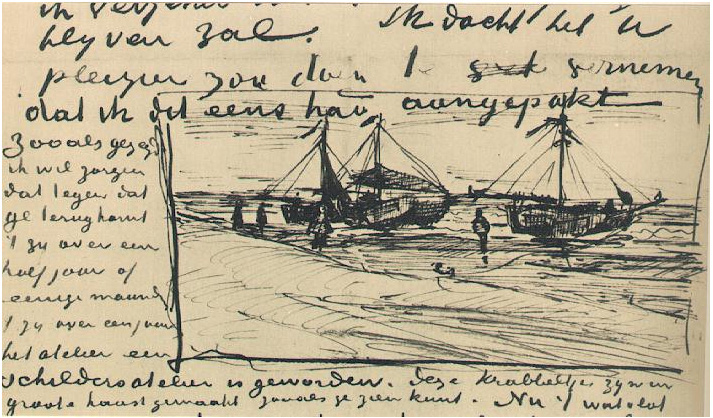 blyven zal. Ik dacht het u
pleizier zou doen te vernemen
dat ik dit eens had aangepakt
Zooals gezegd
ik wil zorgen
dat tegen dat
ge terugkomt
't zij over een
half jaar of
eenige maanden
't zij over een jaar
het atelier een
schildersatelier is geworden. Deze krabbeltjes zyn in
groote haast gemaakt zooals ge zien kunt. Nu 't wat vlot